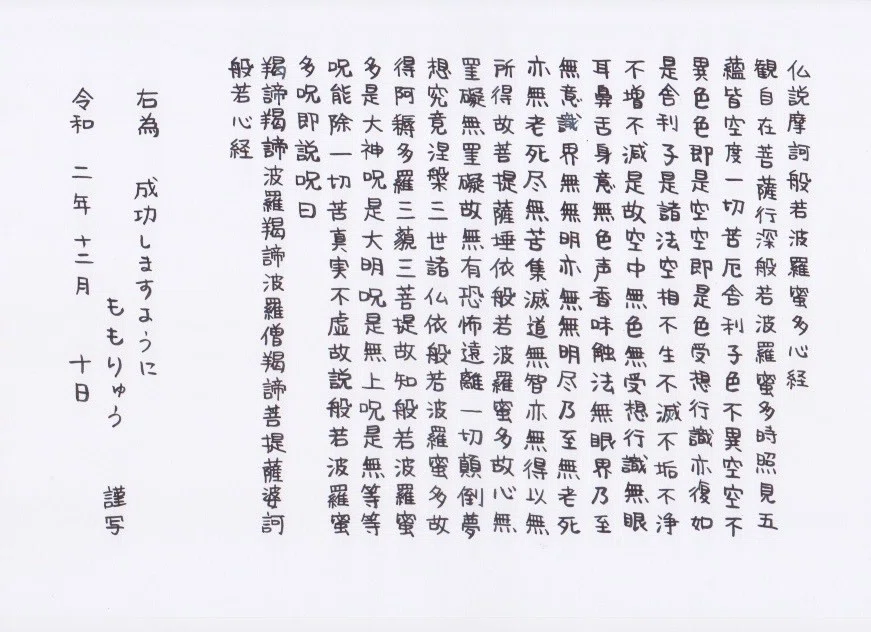 仏説摩訶般若波羅蜜多心経
観自在菩薩行深般若波羅蜜多時照見五
蘊皆空度一切苦厄舎利子色不異空空不
異色色即是空空即是色受想行識亦復如
是舎利子是諸法空相不生不滅不垢不浄
不増不減是故空中無色無受想行識無眼
耳鼻舌身意無色声香味触法無眼界乃至
無意識界無無明亦無無明尽乃至無老死
亦無老死尽無苦集滅道無智亦無得以無
所得故菩提薩埵依般若波羅蜜多故心無
罣礙無罣礙故無有恐怖遠離一切顛倒夢
想究竟涅槃三世諸仏依般若波羅蜜多故
得阿耨多羅三藐三菩提故知般若波羅蜜
多是大神呪是大明呪是無上呪是無等等
呪能除一切苦真実不虚故説般若波羅蜜
多呪即説呪曰
羯諦羯諦波羅羯諦波羅僧羯諦菩提薩婆訶
般若心経
右為 成功しますように
ももりゅう 謹写
令和 二年 十二月 十日